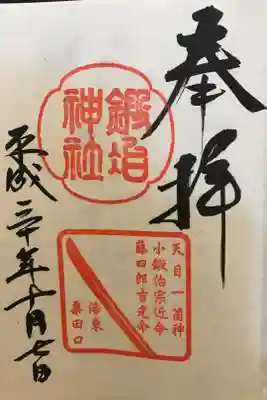 奉拝
鍛冶
神社
天目一箇神
小鍛治宗近命
藤四郎吉光命
洛東
粟田口
平成三十年十月七日